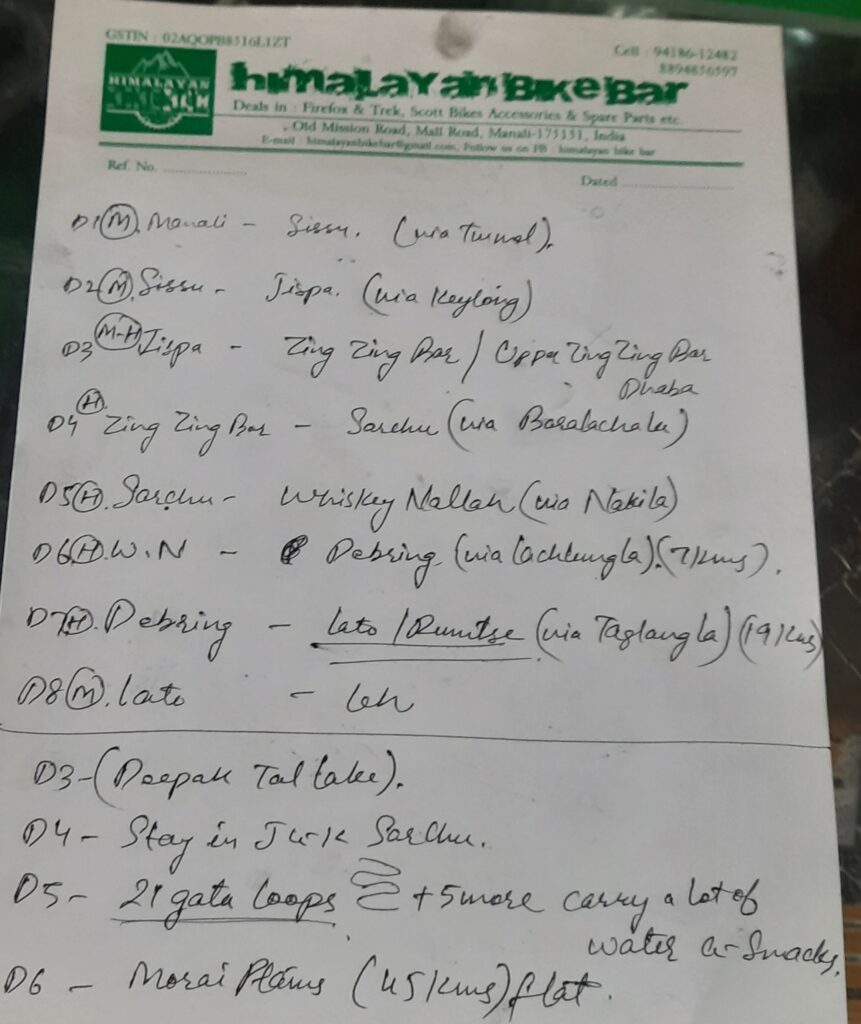 GSTIN : 02AQOPB8516L1ZT
Cell : 94186-12482
8894856597
HIMALAYAN
himaLaYan BiKe Bar
Deals in : Firefox & Trek, Scott Bikes Accessories & Spare Parts etc.
Old Mission Road, Mall Road, Manali-175131, India
E-mail : himalayanbikebar@gmail.com, Follow us on FB : himalayan bike bar
Ref. No. ....................
Dated ........................
D1 (M). Manali - Sissu. (via Tunnel).
D2 (M). Sissu - Jispa. (via Keylong)
D3 (M-H) Jispa - Zing Zing Bar / Uppa Zing Zing Bar
Dhaba
D4 (H) Zing Zing Bar - Sarchu (via Baralachala)
D5 (H). Sarchu - Whiskey Nallah (via Nakila)
D6 (H). W.N - Debring (via lachlungla). (71kms).
D7 (H). Debring - Lato / Rumtse (via Taglangla) (19kms)
D8 (M). Lato - Leh
D3 - (Deepak Tal lake).
D4 - Stay in J&K Sarchu.
D5 - 21 gata loops + 5 more carry a lot of
water & snacks.
D6 - Morai Plains (45kms) flat.